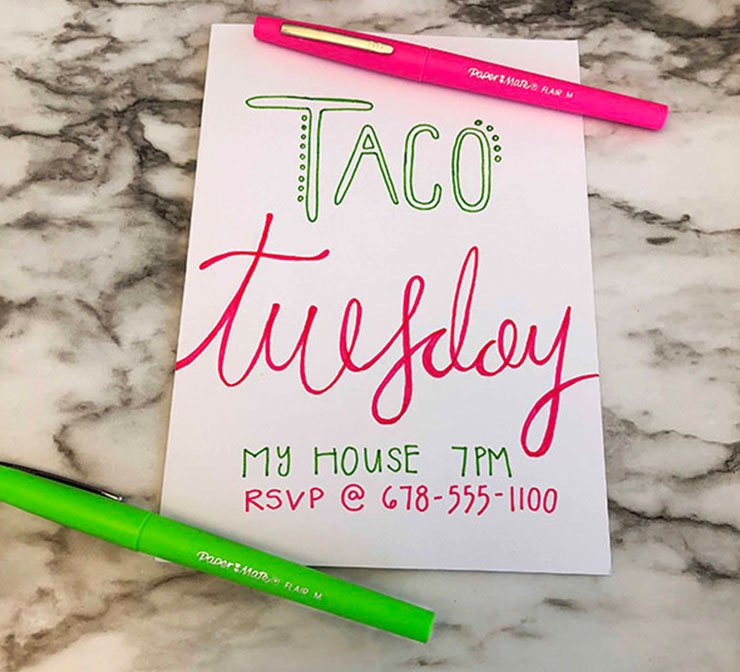 Paper Mate® FLAIR M
TACO
tuesday
MY HOUSE 7PM
RSVP @ 678-555-1100
Paper Mate® FLAIR M